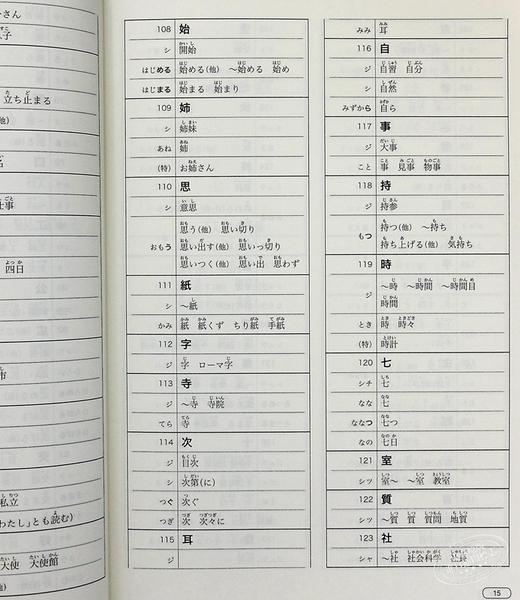 ーさん
子
立ち止まる
他)
仕事
四日
市
私立
わたし」とも読む)
大使 大使館
他)
108 始
シ 開始
はじめる 始める(他) 〜始める 始め
はじまる 始まる 始まり
109 姉
シ 姉妹
あね 姉
(特) お姉さん
110 思
シ 意思
思う(他) 思い切り
おもう 思い出す(他) 思いっ切り
思いつく(他) 思い出 思わず
111 紙
シ 〜紙
かみ 紙 紙くず ちり紙 手紙
112 字
ジ 字 ローマ字
113 寺
ジ 〜寺 寺院
てら 寺
114 次
ジ 目次
シ 次第(に)
つぐ 次ぐ
つぎ 次 次々に
115 耳
ジ
みみ 耳
116 自
ジ 自習 自分
シ 自然
みずから 自ら
117 事
ジ 大事
こと 事 見事 物事
118 持
ジ 持参
もつ 持つ(他) 〜持ち
持ち上げる(他) 気持ち
119 時
ジ 〜時 〜時間 〜時間目
時間
とき 時 時々
(特) 時計
120 七
シチ 七
なな 七
ななつ 七つ
なの 七日
121 室
シツ 室〜 〜室 教室
122 質
シツ 〜質 質 質問 地質
123 社
シャ 〜社 社会科学 社長
15